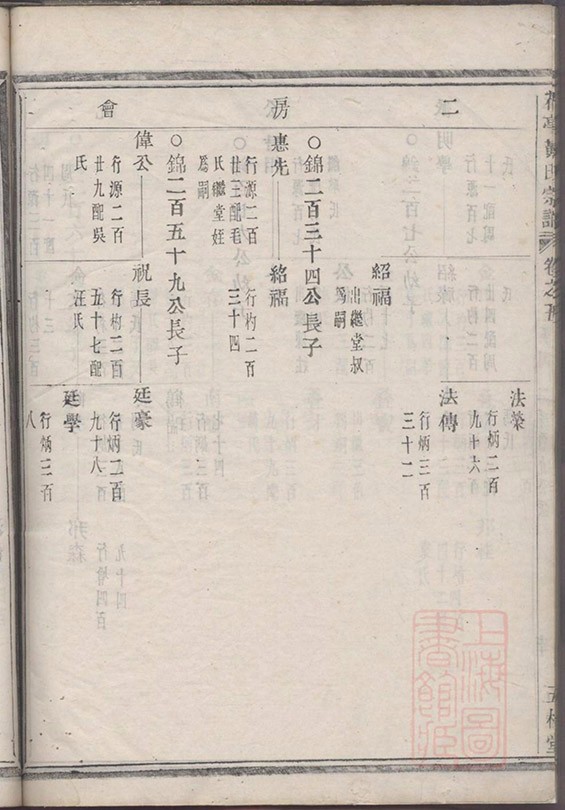 宗譜
卷之
二
房
會
法榮
行炳二百
九十六
法傳
行炳三百
三十一
紹福
出繼堂叔
為嗣
○錦二百三十四公長子
惠先
行源二百
廿三配毛
氏繼堂姪
為嗣
紹福
行杓二百
三十四
○錦二百五十九公長子
偉公
行源二百
廿九配吳
氏
祝長
行杓二百
五十七配
汪氏
廷豪
行炳二百
九十八
廷學
行炳三百
八
上海圖
書館藏